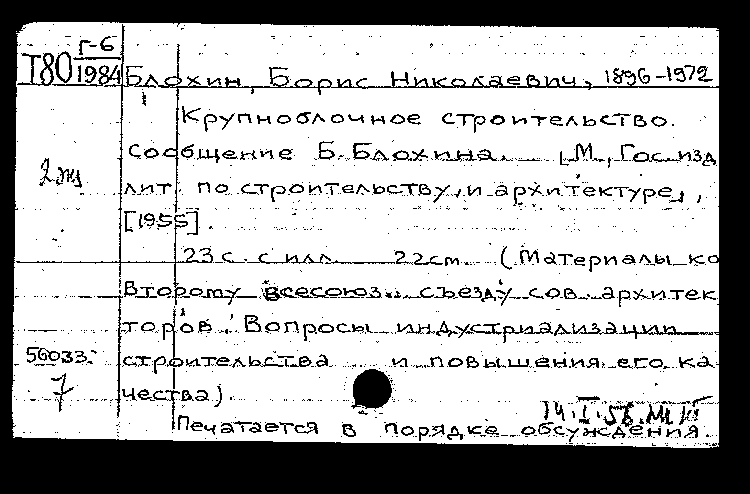 Т80 Г-6
1984
Блохин, Борис Николаевич, 1896-1972
Крупноблочное строительство.
Сообщение Б. Блохина. М., Гос. изд
2 экз
лит. по строительству и архитектуре,
[1955].
23 с. с илл. 22 см. (Материалы ко
Второму всесоюз. съезду сов. архитек
торов. Вопросы индустриализации
56033
7
строительства и повышения его ка
чества).
14.I.58.
Печатается в порядке обсуждения.